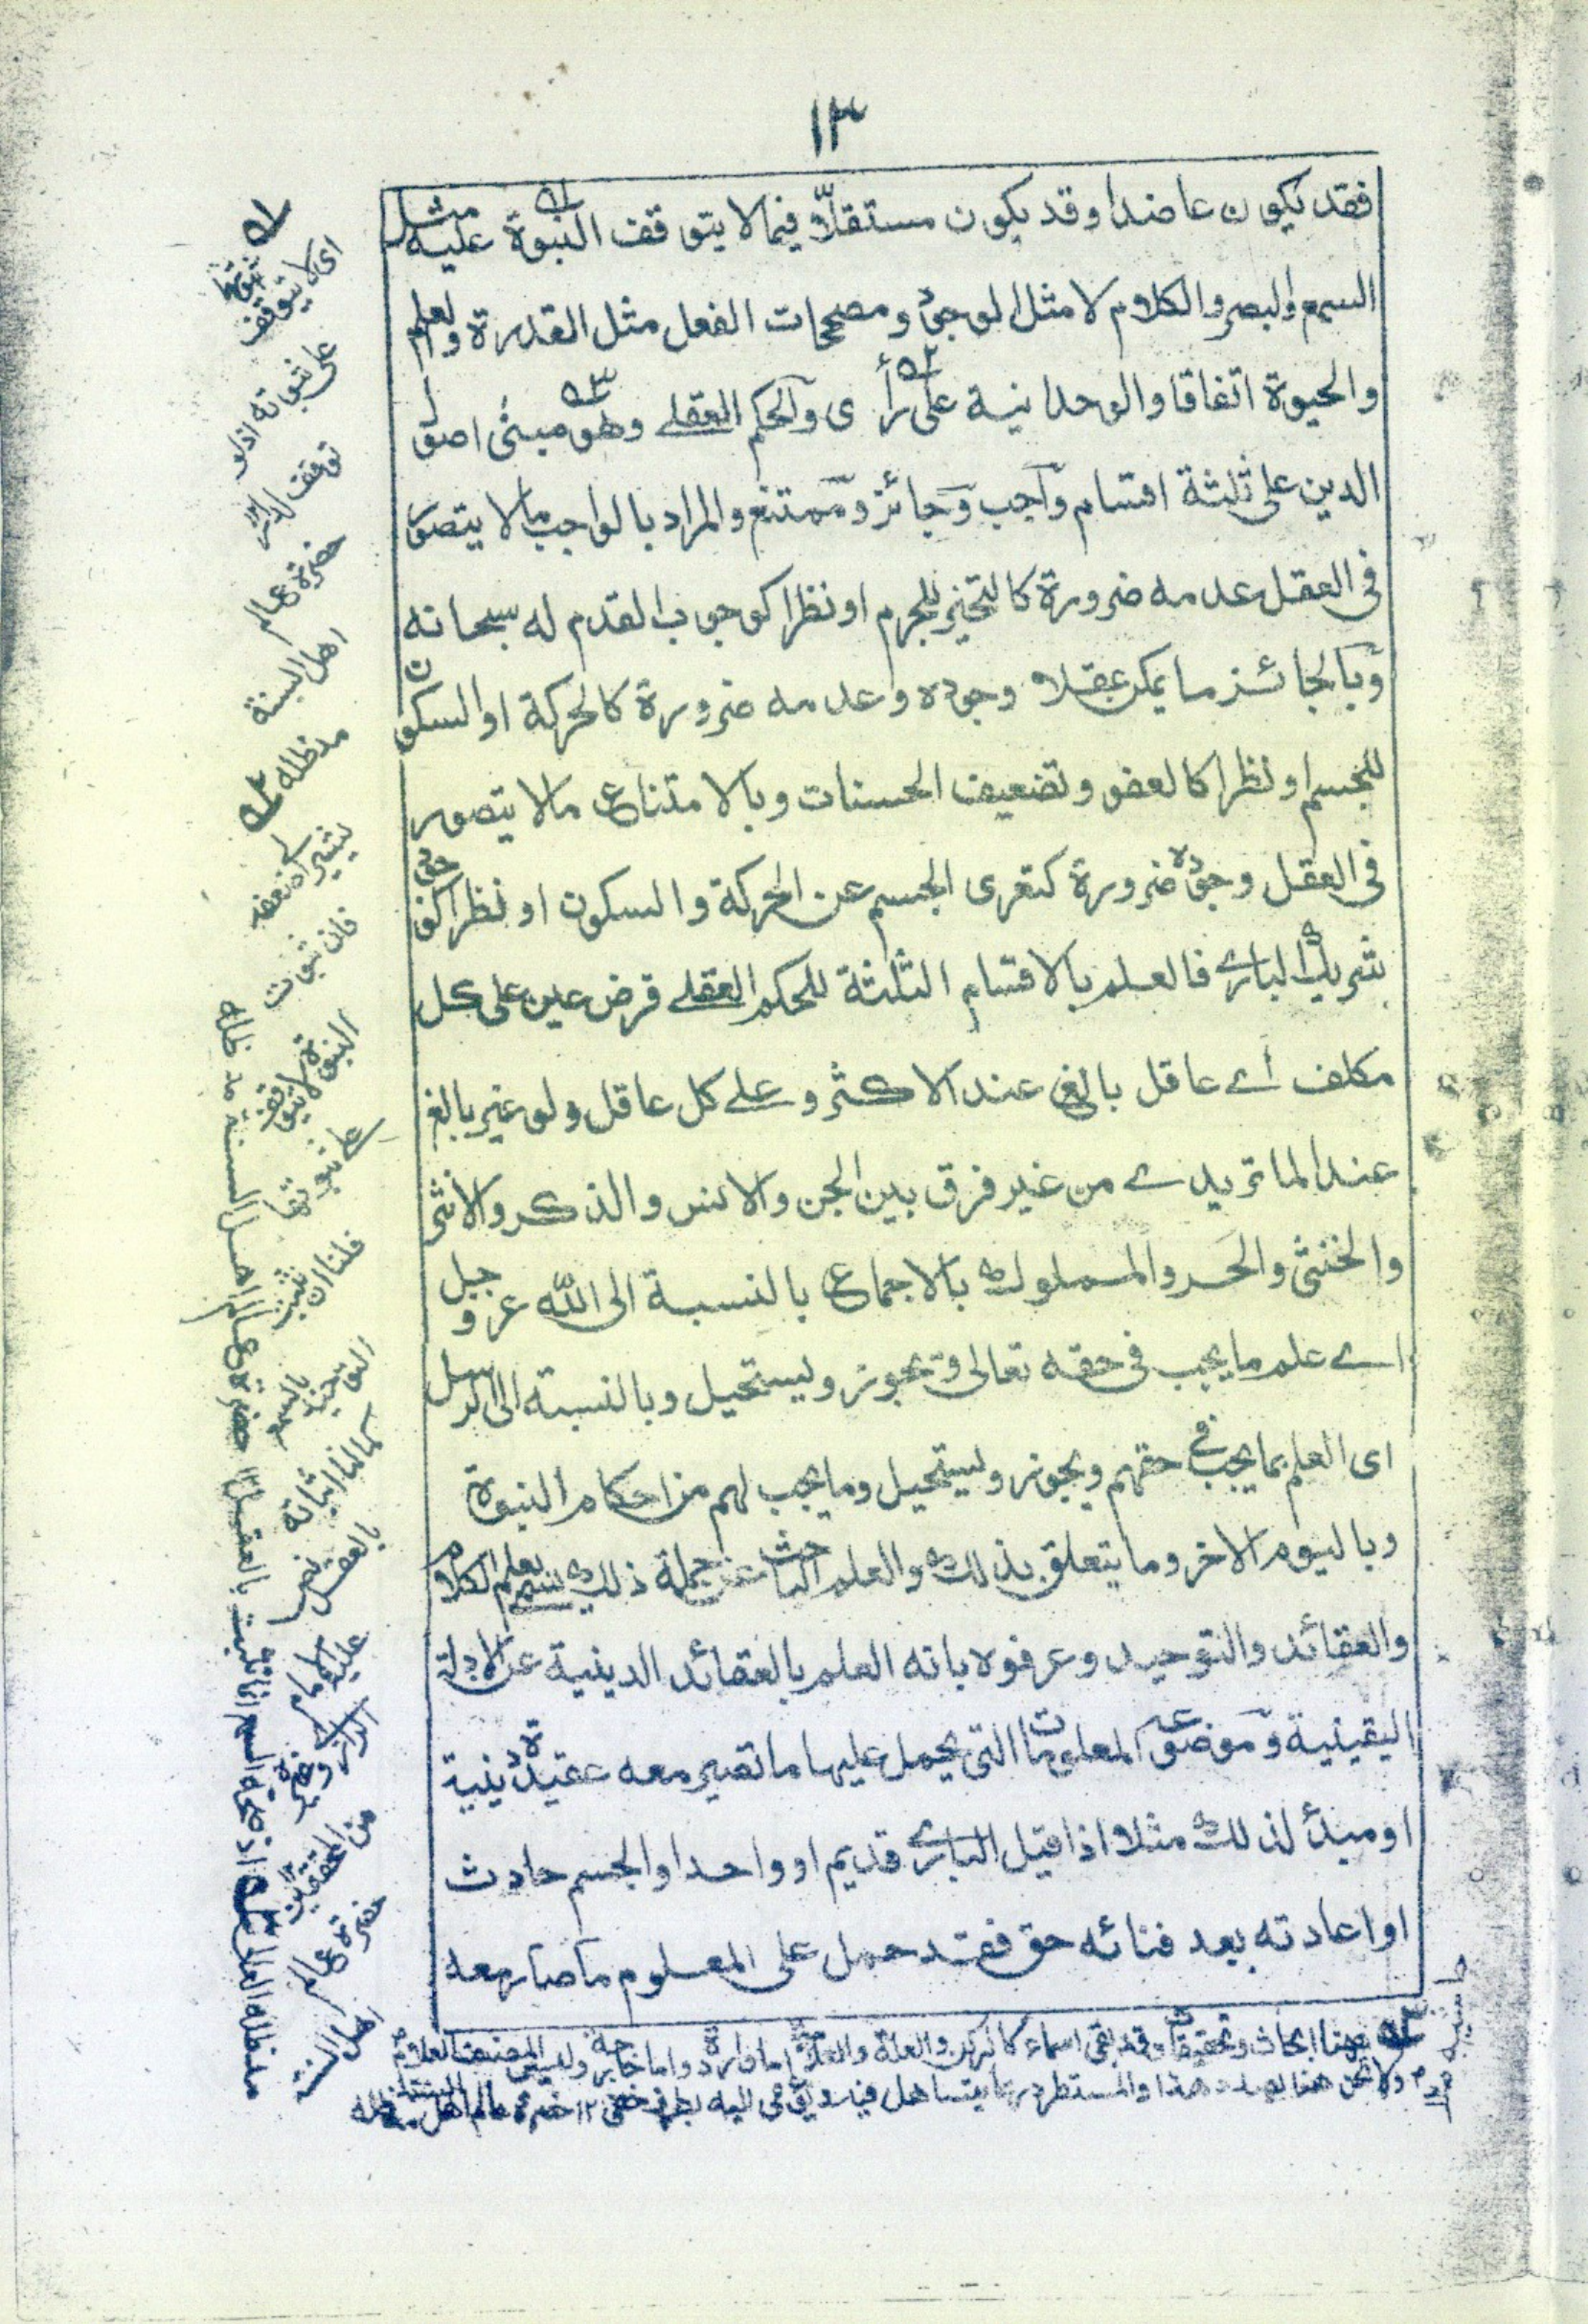 ١٣
فقد يكون عاضدا وقد يكون مستقلاّ فيما لا يتوقف النبوة عليه مثل
السمع والبصر والكلام لا مثل الوجود ومصححات الفعل مثل القدرة والعلم
والحيوة اتفاقا والوحدانية على رأى والحكم العقلے وهو مبنى اصول
الدين على ثلثة اقسام واجب وجائز وممتنع والمراد بالواجب ما لا يتصور
فى العقل عدمه ضرورة كالتحيز للجرم او نظرا كوجوب القدم له سبحانه
وبالجائز ما يمكن عقلا وجوده وعدمه ضرورة كالحركة او السكون
للجسم او نظرا كالعفو وتضعيف الحسنات وبالامتناع ما لا يتصور
فى العقل وجوده ضرورة كتعرى الجسم عن الحركة والسكون او نظرا كوجود
شريك البارے فالعلم بالاقسام الثلثة للحكم العقلے فرض عين على كل
مكلف اے عاقل بالغ عند الاكثر وعلے كل عاقل ولو غير بالغ
عند الماتريدے من غير فرق بين الجن والانس والذكر والانثى
والخنثى والحر والمملوك بالاجماع بالنسبة الى الله عز وجل
اے علم ما يجب فى حقه تعالى ويجوز ويستحيل وبالنسبة الى الرسل
اى العلم بما يجب فے حقهم ويجوز ويستحيل وما يجب لهم من احكام النبوة
وباليوم الاخر وما يتعلق بذلك والعلم الباحث عن جملة ذلك يسمى بعلم الكلام
والعقائد والتوحيد وعرفوه بانه العلم بالعقائد الدينية عن الادلة
اليقينية وموضوعه المعلومات التى يحمل عليها ما تصير معه عقيدة دينية
او مبدأ لذلك مثلا اذا قيل البارے قديم او واحد او الجسم حادث
او اعادته بعد فنائه حق فقد حمل على المعلوم ما صار معه
١ه اى لا يتوقف ثبوتها
على ثبوته اذ لا
توقف للشئ ١٢
حضرة عالم
اهل السنة
مدظله ٢ه
يشير الى ضعفه
فان ثبوت
النبوة لا يتوقف
على ثبوتها
فلنا ان نثبت
التوحيد بالسمع
كما لنا اثباته
بالعقل نص
عليه الامام
الرازى وغيره
من المحققين ١٢
حضرة عالم
اهل السنة
مدظله العالى
٣ه ههنا ابحاث وتحقيقات